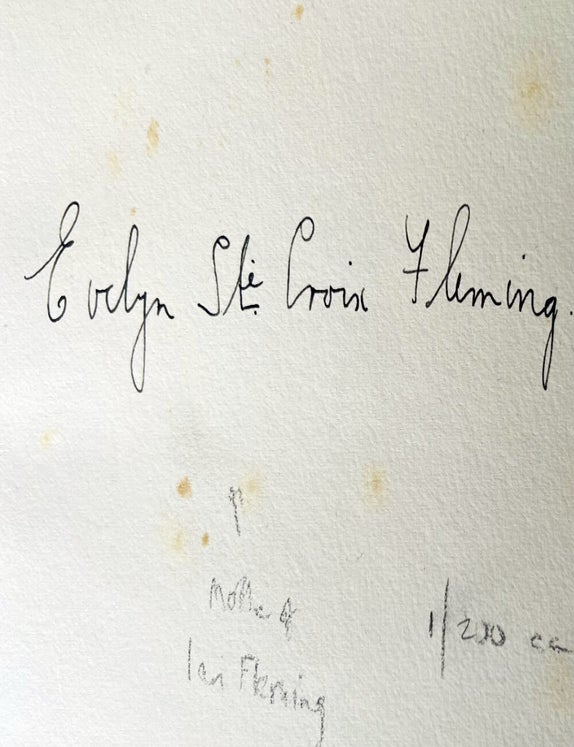 Evelyn Ste. Croix Fleming.
Mother of
Ian Fleming
1/200